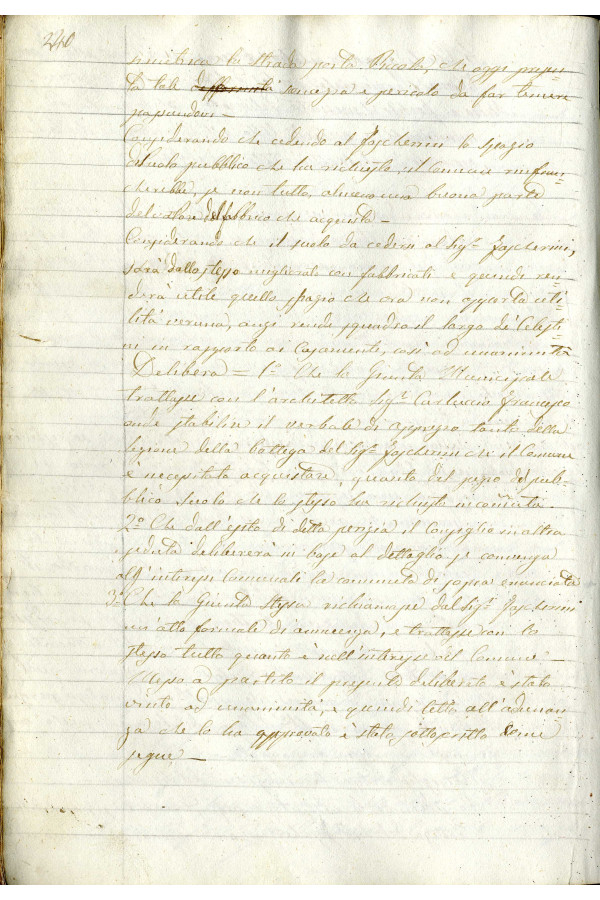 240
la strada porta Piccola, che oggi presen=
ta tale sconcezza e pericolo da far temere
passandovi –
Considerando che cedendo al Foscherini lo spazio
del suolo pubblico che ha richiesto, il Comune rinfran=
cherebbe, se non tutto, almeno una buona parte
del valore del fabbrico che acquista –
Considerando che il suolo da cedersi al Sig.r Foscherini,
sarà dallo stesso migliorato con fabbricati e quindi ren=
derà utile quello spazio che ora non apporta uti=
lità veruna, anzi rende squadra il largo de' Celesti=
ni in rapporto ai Casamenti, così ad unanimità
Delibera = 1.o Che la Giunta Municipale
trattasse con l'architetto Sig.r Carluccio Francesco
onde stabilire il verbale di apprezzo tanto della
sezione della bottega del Sig.r Foscherini che il Comune
è necessitato acquistare, quanto del pezzo del pub=
blico suolo che lo stesso ha richiesto in
2.o Che dall'esito di detta perizia il Consiglio in altra
seduta delibererà in base al dettaglio se convenga
agl'interessi Comunali la di sopra enunciata
3.o Che la Giunta stessa richiamasse dal Sig.r Foscherini
un'atto formale di annuenza, e trattasse con lo
stesso tutto quanto è nell'interesse del Comune –
Messo a partito il presente deliberato è stato
vinto ad unanimità, e quindi letto all'adunan=
za che lo ha approvato è stato sottoscritto come
segue –